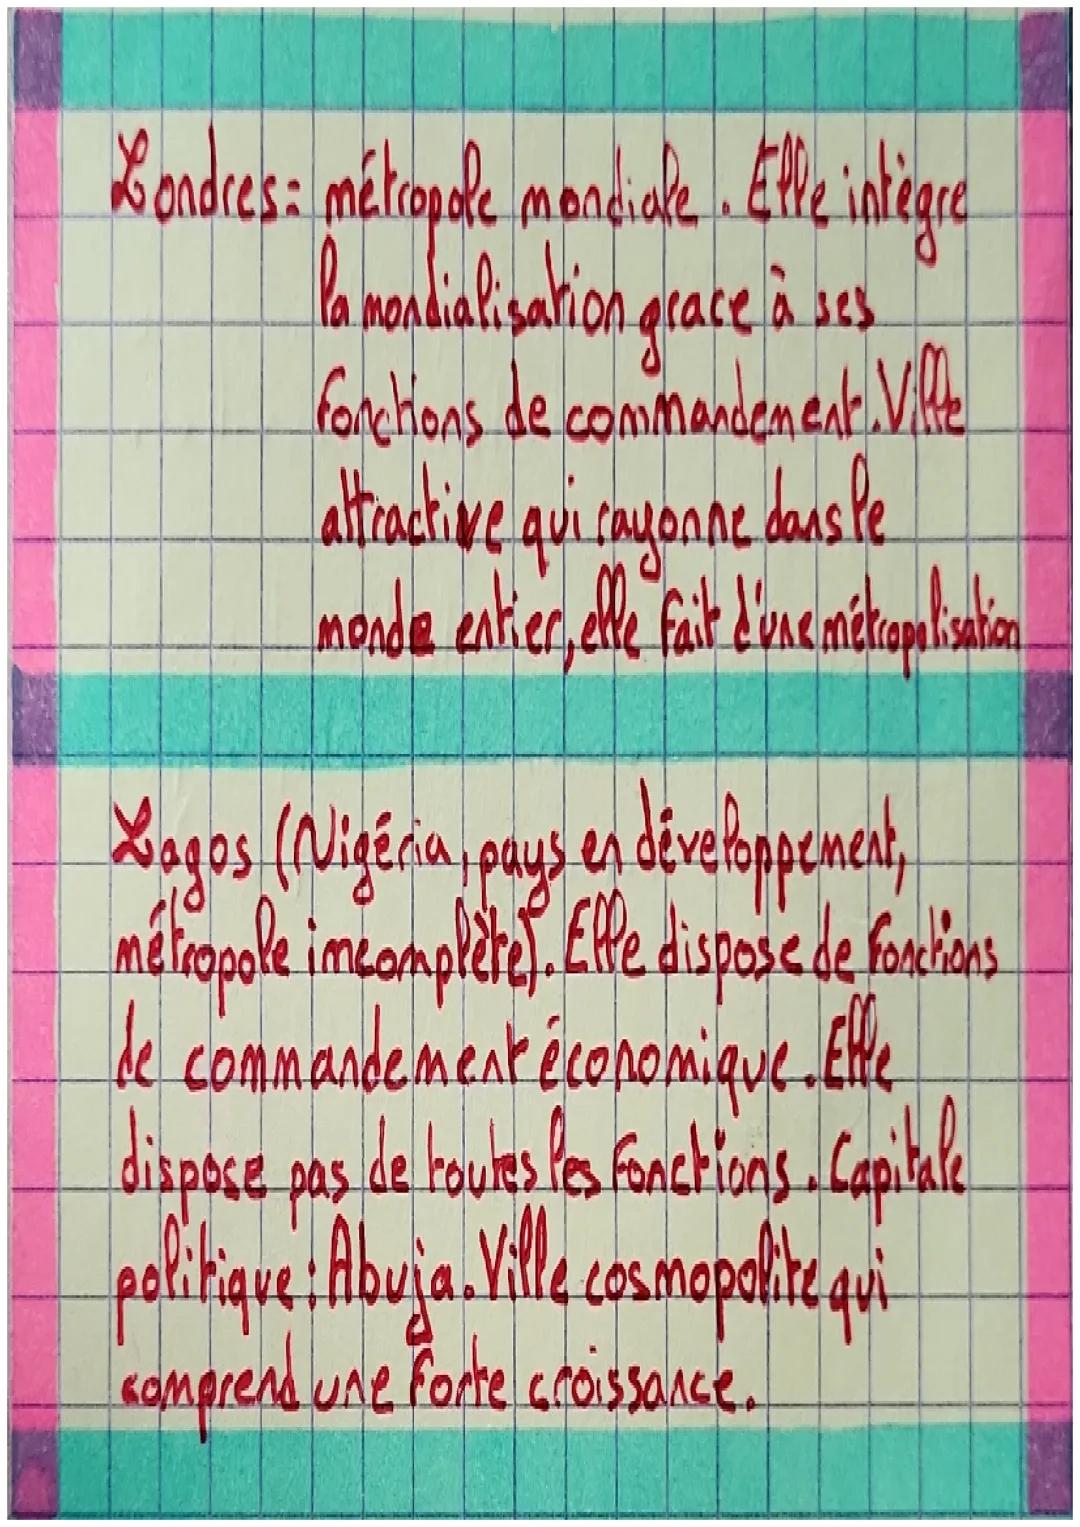 Londres = métropole mondiale. Elle intègre
la mondialisation grace à ses
fonctions de commandement. Ville
attractive qui rayonne dans le
monde entier, elle fait d'une métropolisation
Lagos (Nigéria, pays en développement,
métropole imcomplète). Elle dispose de fonctions
de commandement économique. Elle
dispose pas de toutes les fonctions. Capitale
politique : Abuja. Ville cosmopolite qui
comprend une forte croissance.